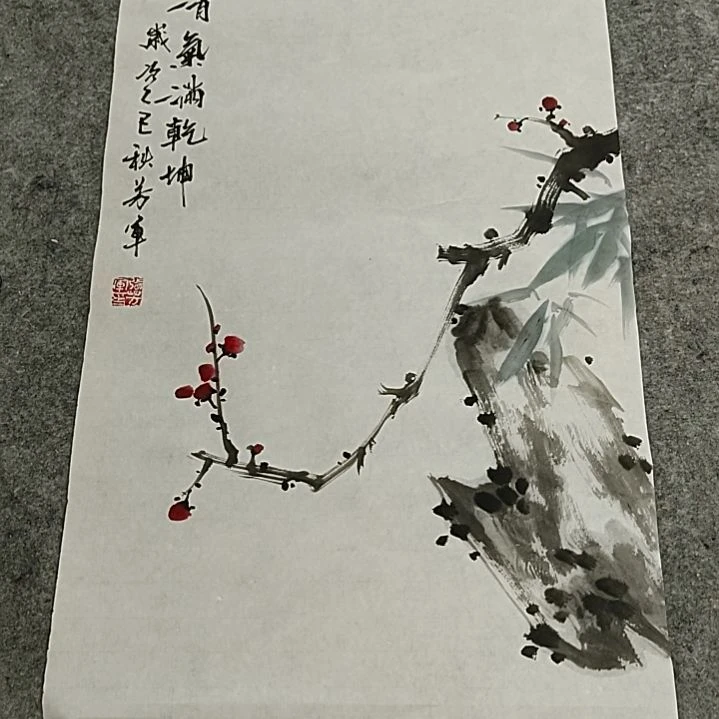 清氣滿乾坤
歲次乙巳秋芳軍